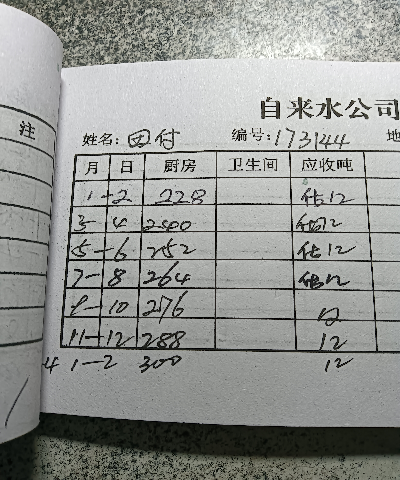 注
自来水公司
姓名: 田付 编号: 173144 地
月 日 厨房 卫生间 应收吨
1-2 228 估12
3-4 240 估12
5-6 252 估12
7-8 264 估12
9-10 276 12
11-12 288 12
4 1-2 300 12